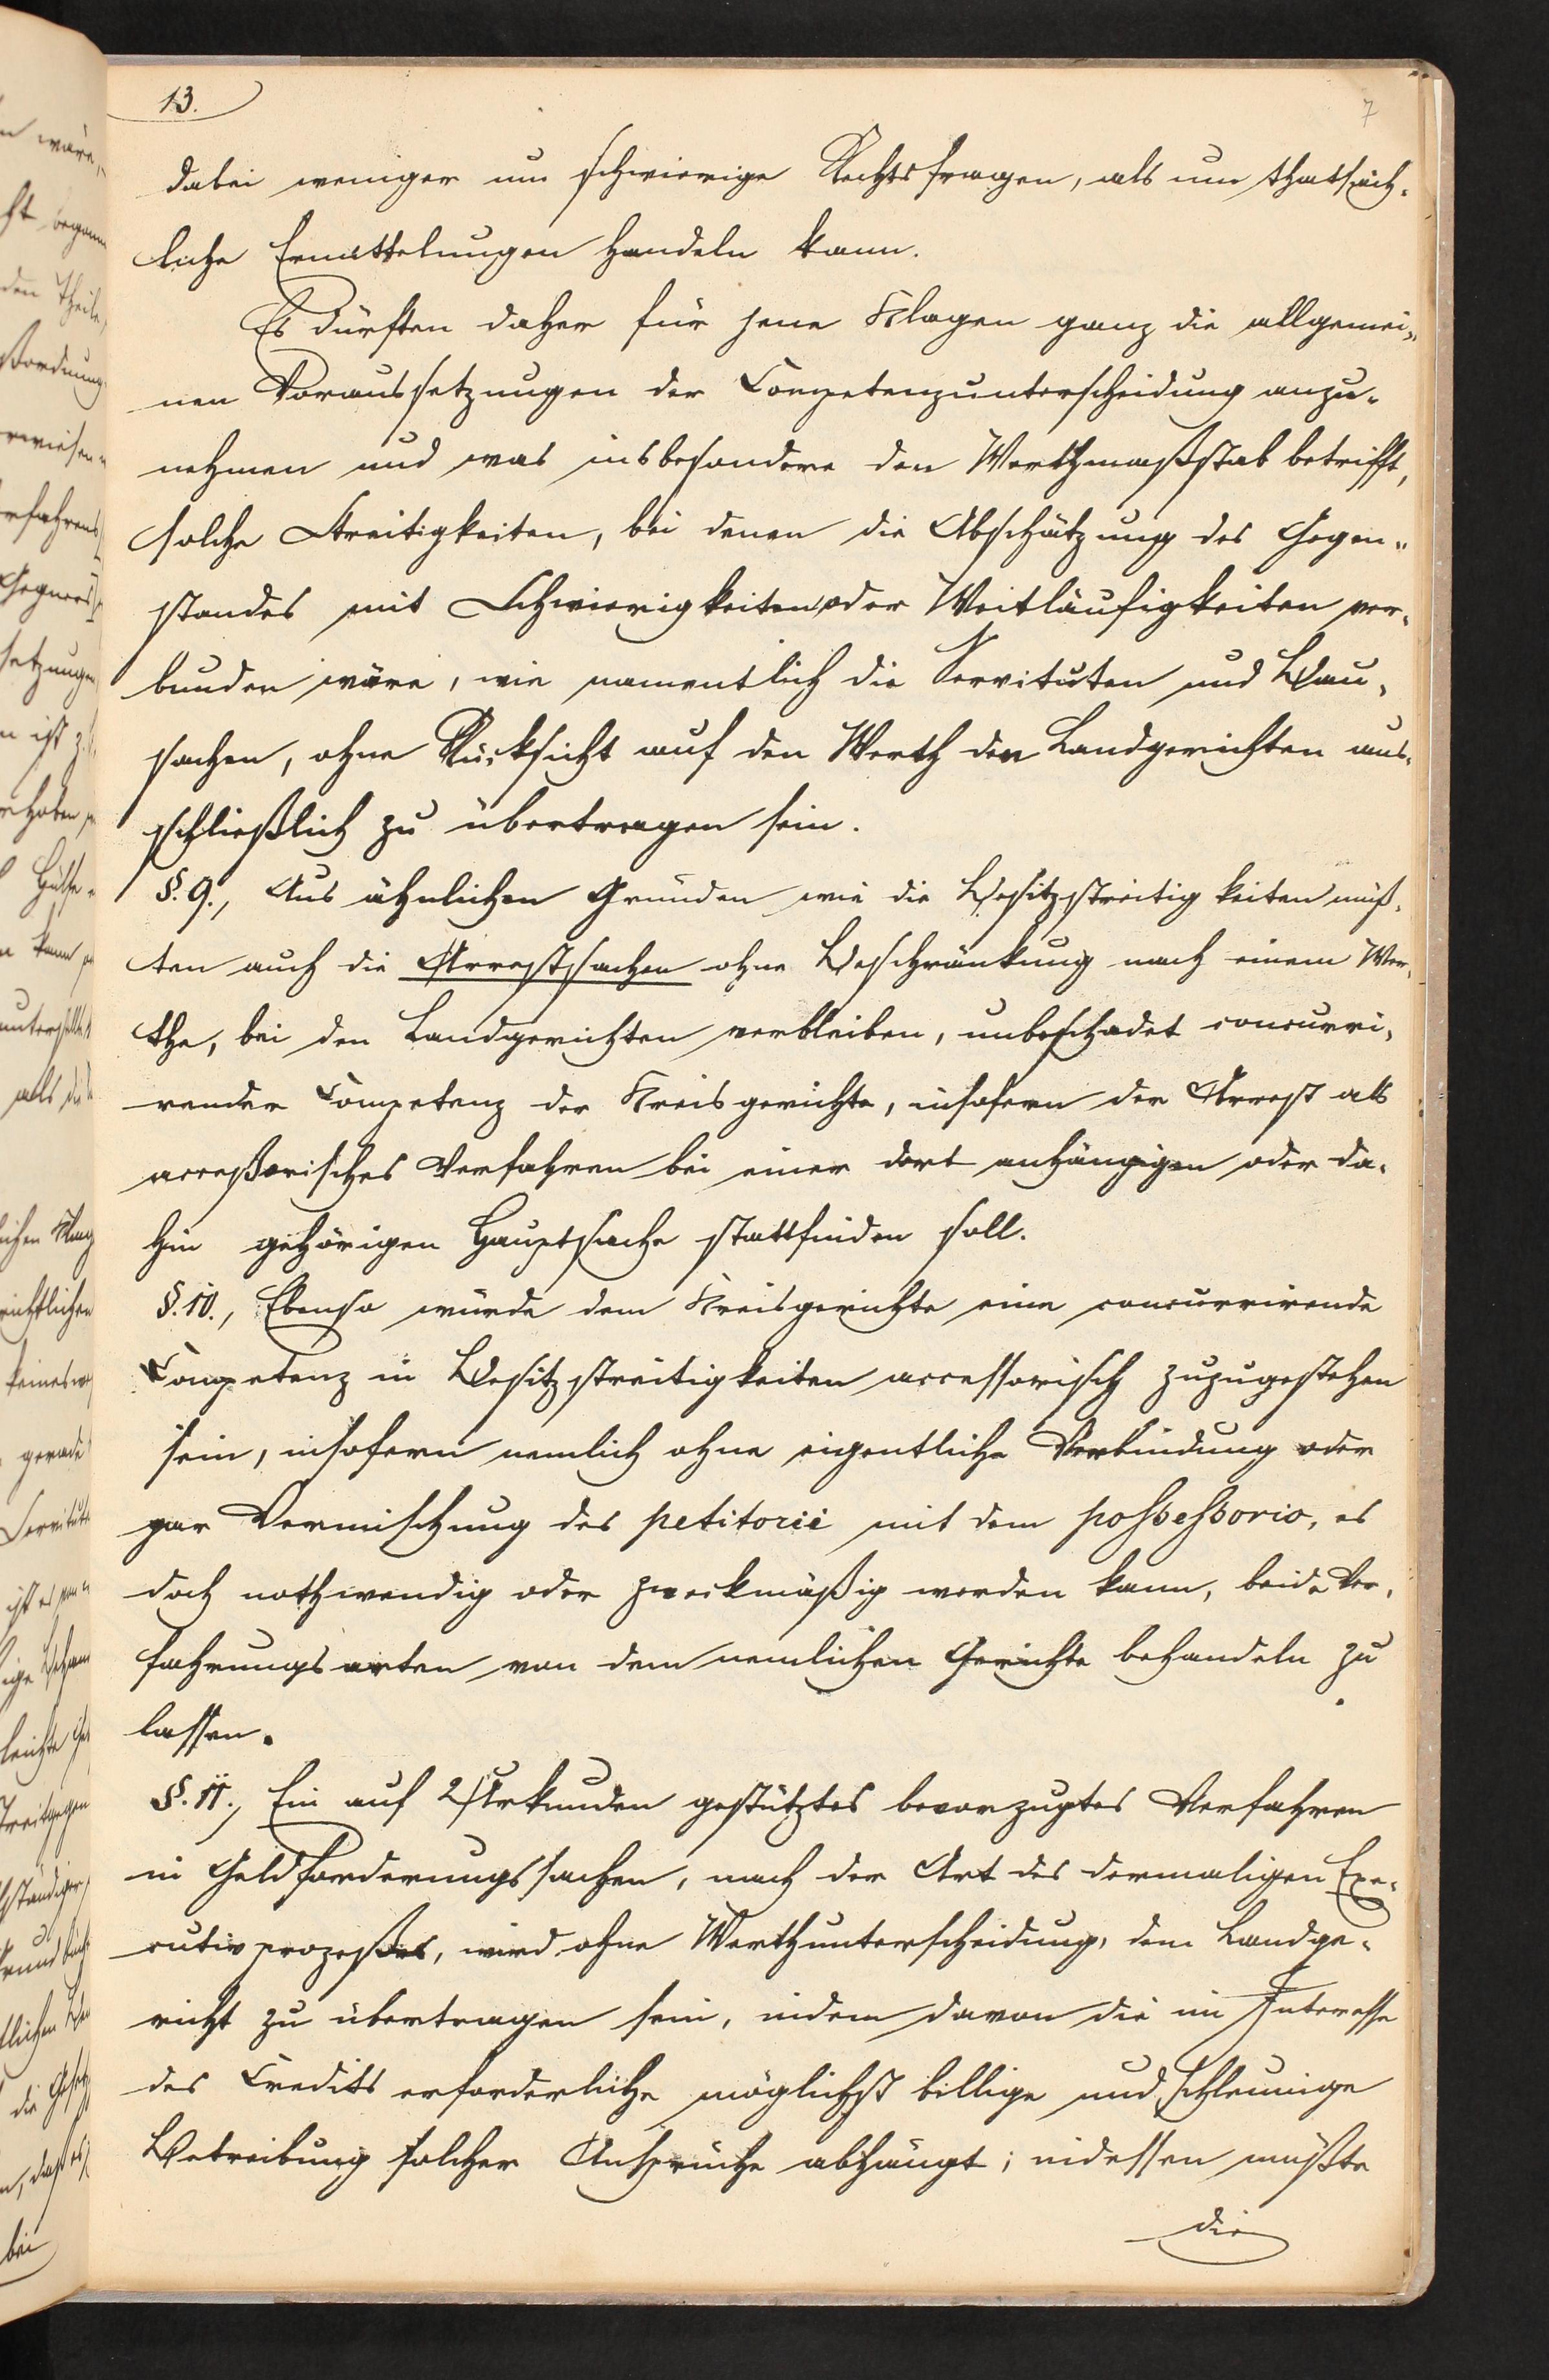 13.
7
dabei weniger um schwierige Rechtsfragen, als um thatsäch-
liche Ermittelungen handeln kann.
Es dürften daher für jene Klagen ganz die allgemei-
nen Voraussetzungen der Competenzunterscheidung anzu-
nehmen und was insbesondere den Werthmaßstab betrifft,
solche Streitigkeiten, bei denen die Abschätzung des Gegen-
standes mit Schwierigkeiten oder Weitläufigkeiten ver-
bunden wäre, wie namentlich die Servituten und Bau-
sachen, ohne Rücksicht auf den Werth den Landgerichten aus-
schließlich zu übertragen sein.
§. 9., Aus ähnlichen Gründen wie die Besitzstreitigkeiten müß-
ten auch die Arrestsachen ohne Beschränkung nach einem Wer-
the, bei den Landgerichten verbleiben, unbeschadet concurri-
render Competenz der Kreisgerichte, insofern der Arrest als
acceßorisches Verfahren bei einer dort anhängigen oder da-
hin gehörigen Hauptsache stattfinden soll.
§. 10., Ebenso würde dem Kreisgerichte eine concurrirende
Competenz in Besitzstreitigkeiten accessorisch zuzugestehen
sein, insofern nemlich ohne eigentliche Verbindung oder
gar Vermischung des petitorii mit dem possessorio, es
doch nothwendig oder zweckmäßig werden kann, beide Ver-
fahrungsarten von dem nemlichen Gerichte behandeln zu
lassen.
§. 11., Ein auf Urkunden gestütztes bevorzugtes Verfahren
in Geldforderungssachen, nach der Art des dermaligen Exe-
cutivprozeßes, wird ohne Werthunterscheidung, dem Landge-
richt zu übertragen sein, indem davon die im Interesse
des Credits erforderliche möglichst billige und schleunige
Betreibung solcher Ansprüche abhängt; indessen müßte
die